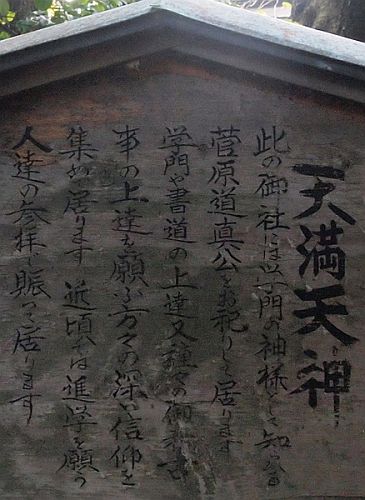 天満天神
此の御社には学門の神様として知られる
菅原道真公をお祀りして居ります
学門や書道の上達又種々の御稽古
事の上達を願ふ方々の深い信仰を
集め居ります 近頃では進学を願う
人達の参拝で賑って居ります